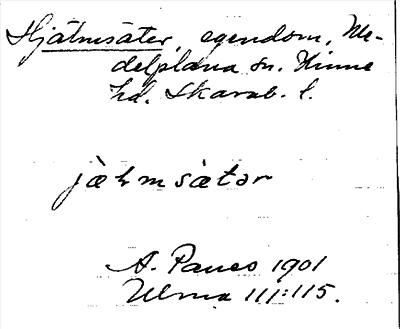 Hjälmsäter, egendom, Me-
delplana sn. Kinne
hd. Skarab. l.
jæhmsætər
A. Paues 1901
Ulma 111:115.